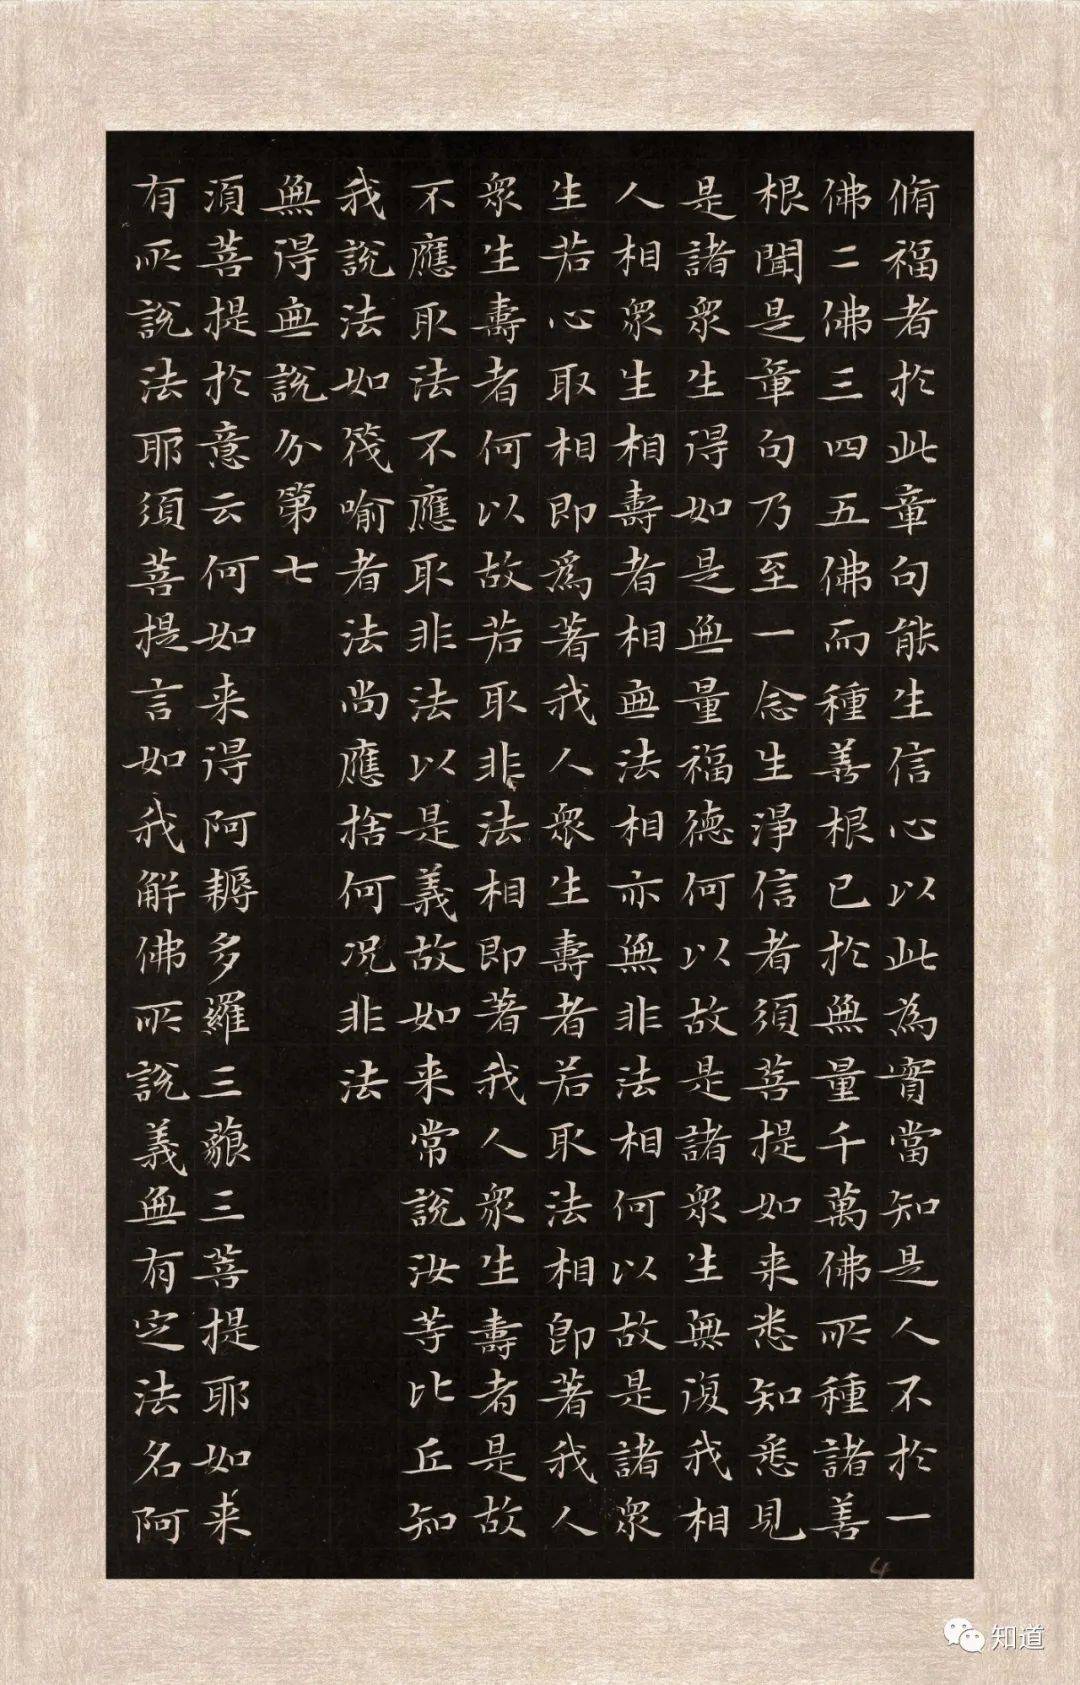 脩福者於此章句能生信心以此為實當知是人不於一
佛二佛三四五佛而種善根已於無量千萬佛所種諸善
根聞是章句乃至一念生淨信者須菩提如来悉知悉見
是諸眾生得如是無量福德何以故是諸眾生無復我相
人相眾生相壽者相無法相亦無非法相何以故是諸眾
生若心取相即為著我人眾生壽者若取法相即著我人
眾生壽者何以故若取非法相即著我人眾生壽者是故
不應取法不應取非法以是義故如来常說汝等比丘知
我說法如筏喻者法尚應捨何况非法
無得無說分第七
須菩提於意云何如来得阿耨多羅三藐三菩提耶如来
有所說法耶須菩提言如我解佛所說義無有定法名阿
4
知道